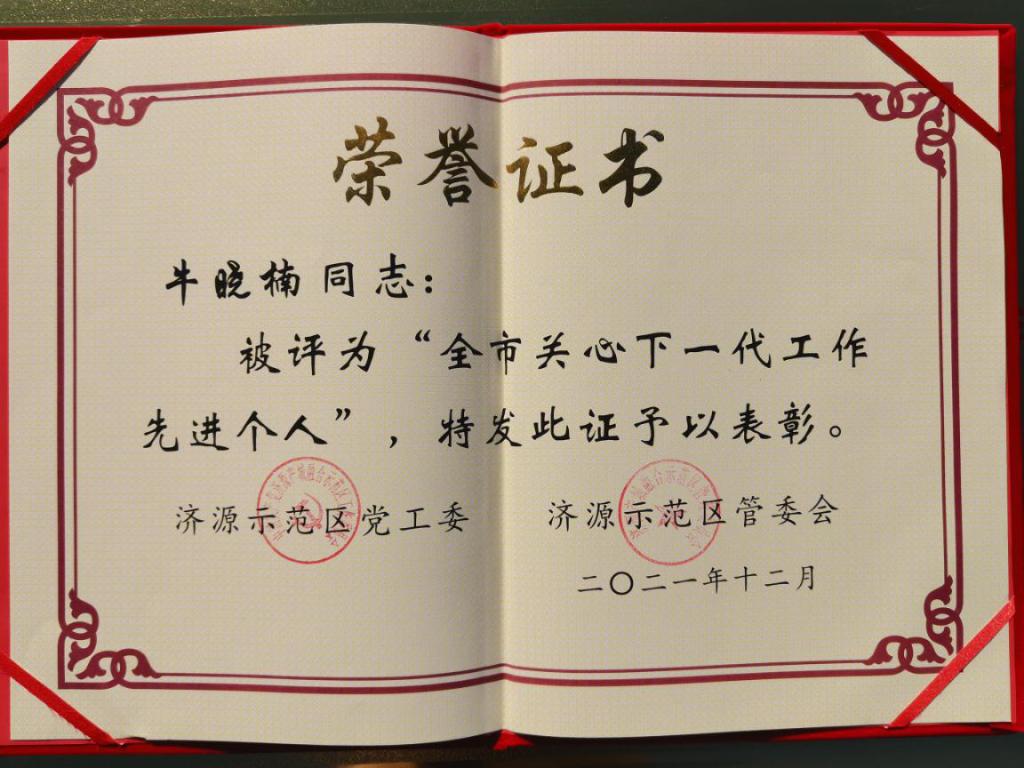 荣誉证书
牛晓楠同志：
被评为“全市关心下一代工作
先进个人”，特发此证予以表彰。
济源示范区党工委 济源示范区管委会
二〇二一年十二月